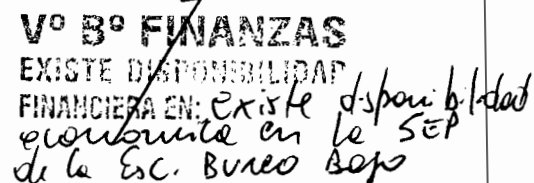 Vº Bº FINANZAS
EXISTE DISPONIBILIDAD
FINANCIERA EN: existe disponibilidad
economica en la SEP
de la Esc. Bureo Bajo